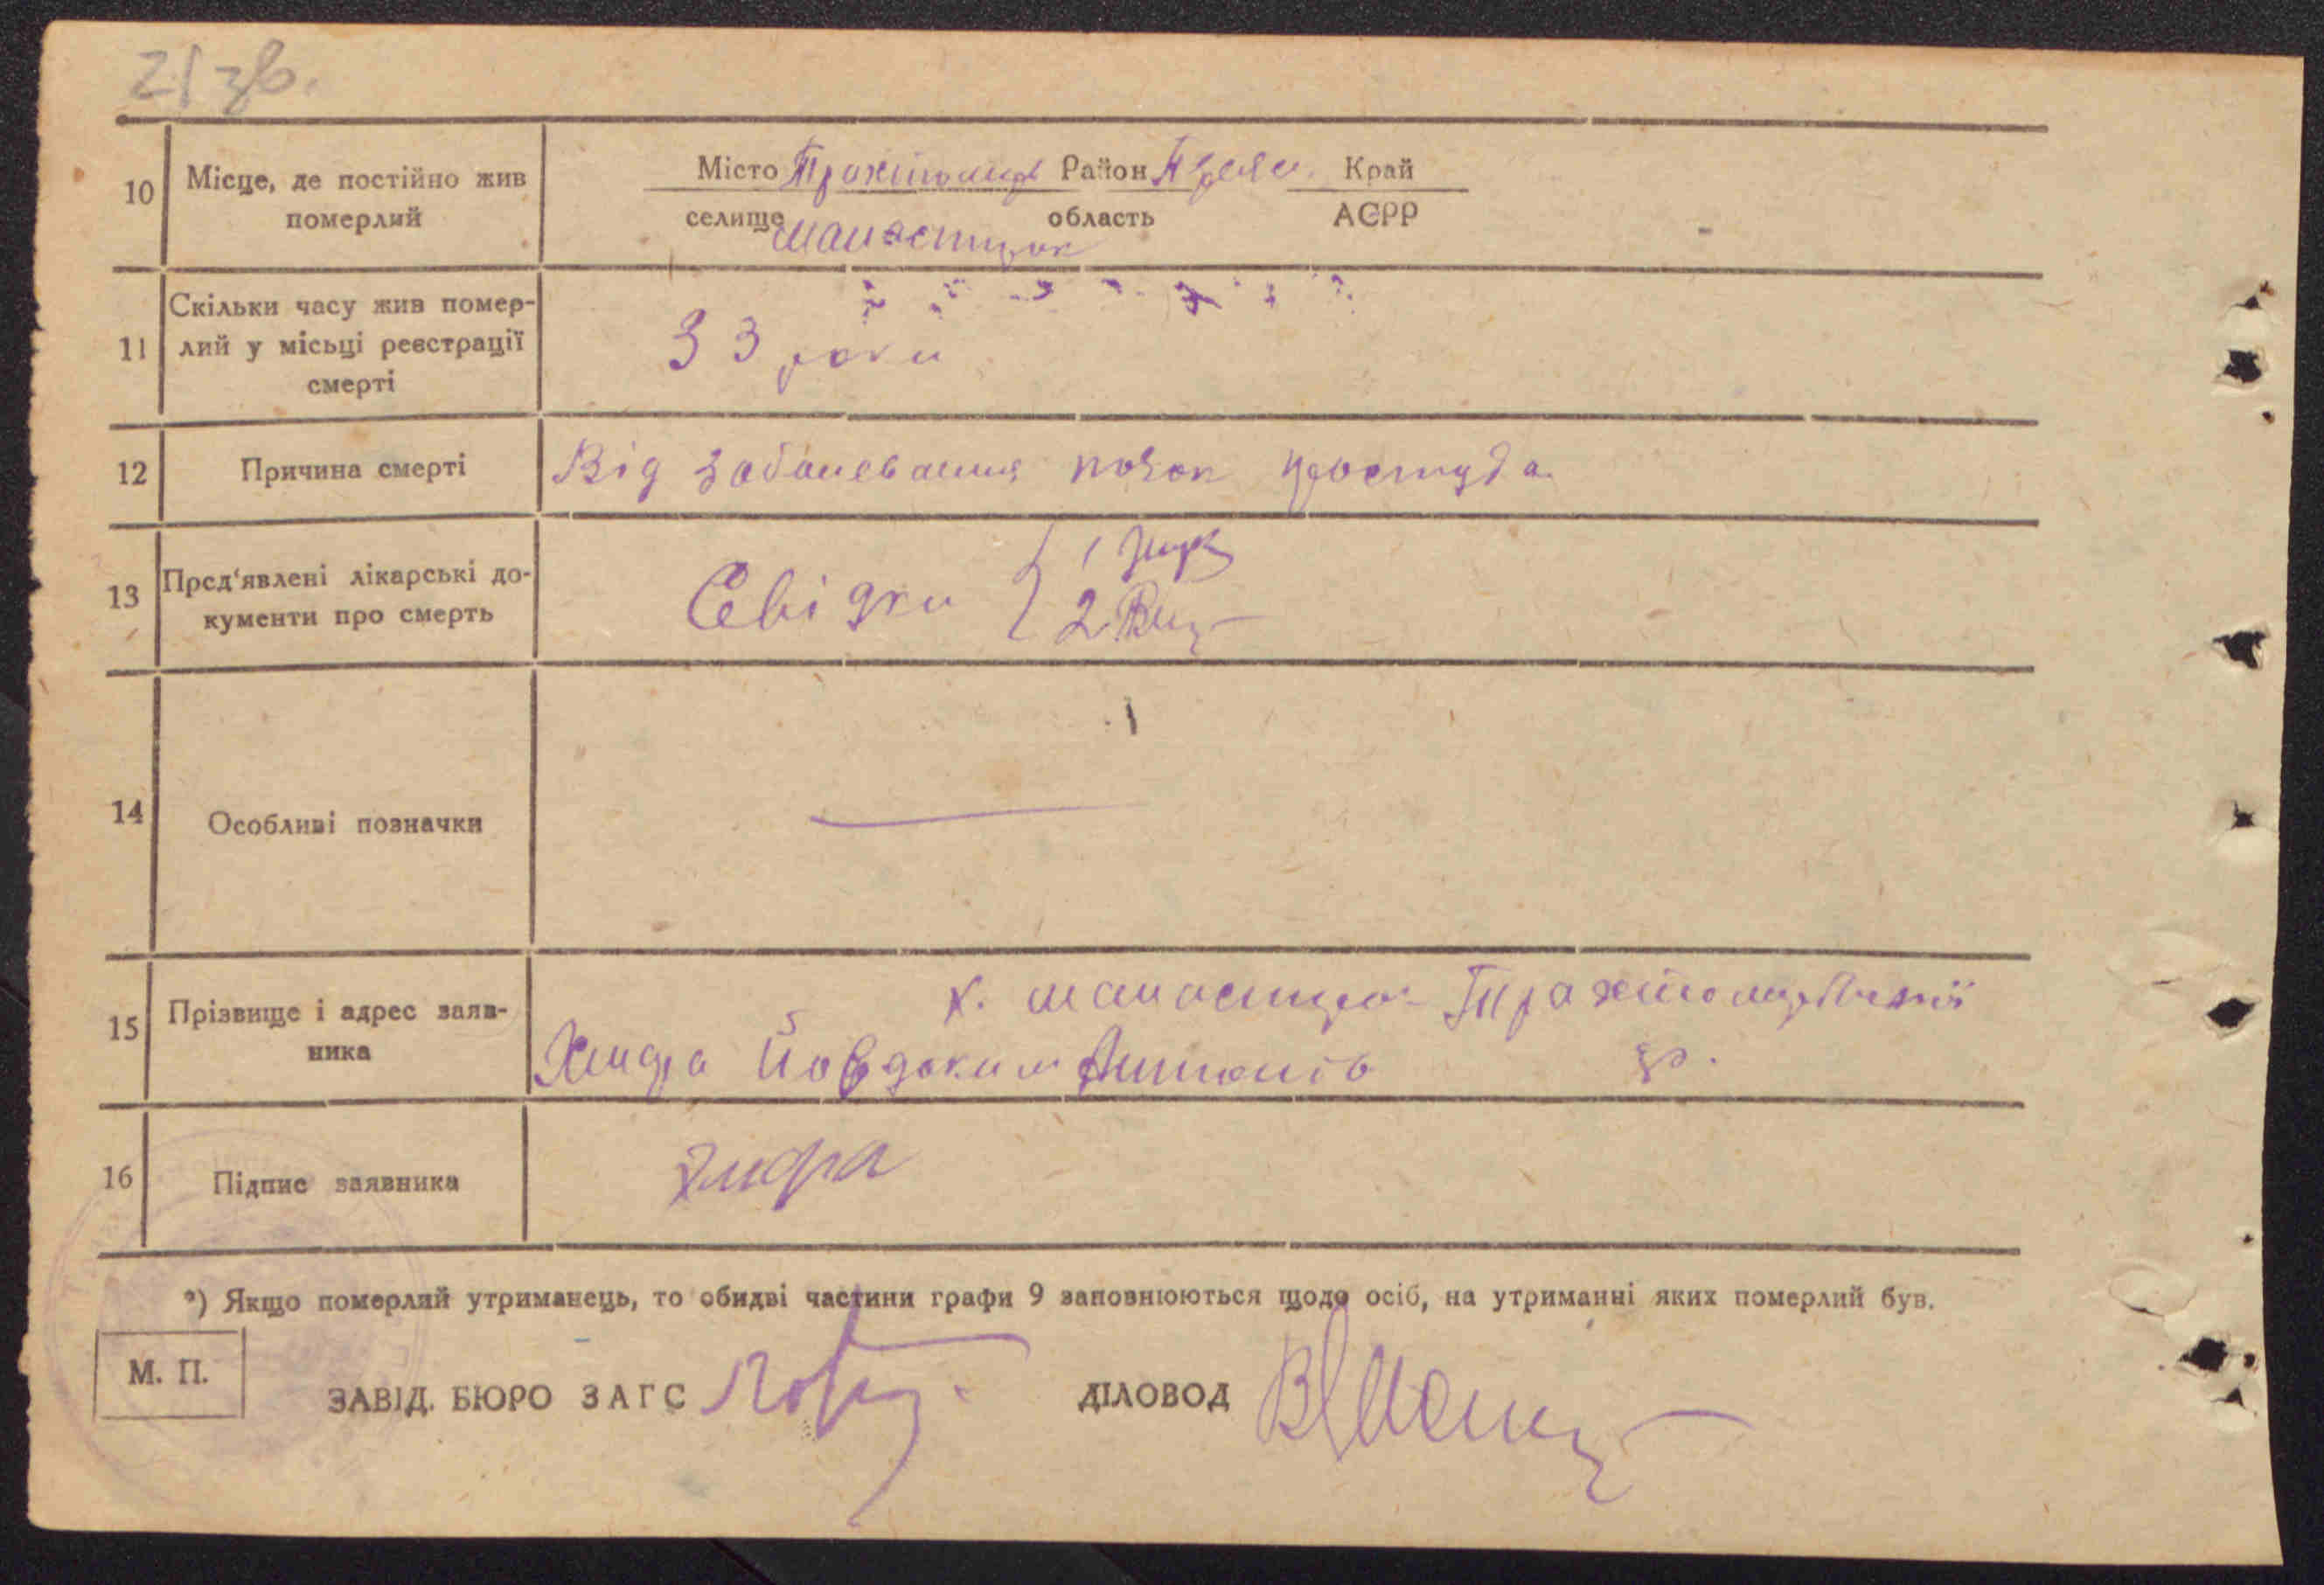 21 зв.
10 Місце, де постійно жив померлий
Місто Трахтомир Район Район Край
селище манастирок область АСРР
11 Скільки часу жив померлий у місьці реєстрації смерті
33 роки
12 Причина смерті
Від заболевания почок простуда
13 Пред'явлені лікарські документи про смерть
Свідки 1
2
14 Особливі позначки
15 Прізвище і адрес заявника
х. манастирок Трахтомирівської
Йовдоким Антонів
16 Підпис заявника
*) Якщо померлий утриманець, то обидві частини графи 9 заповнюються щодо осіб, на утриманні яких померлий був.
М. П.
ЗАВІД. БЮРО ЗАГС ДІЛОВОД